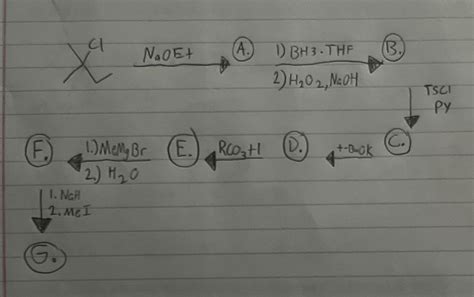 Cl
NaOEt
A.
1) BH3·THF
2) H2O2, NaOH
B.
TSCl
PY
C.
t-BuOK
D.
RCO3H
E.
1.) MeMgBr
2.) H2O
F.
1. NaH
2. MeI
G.